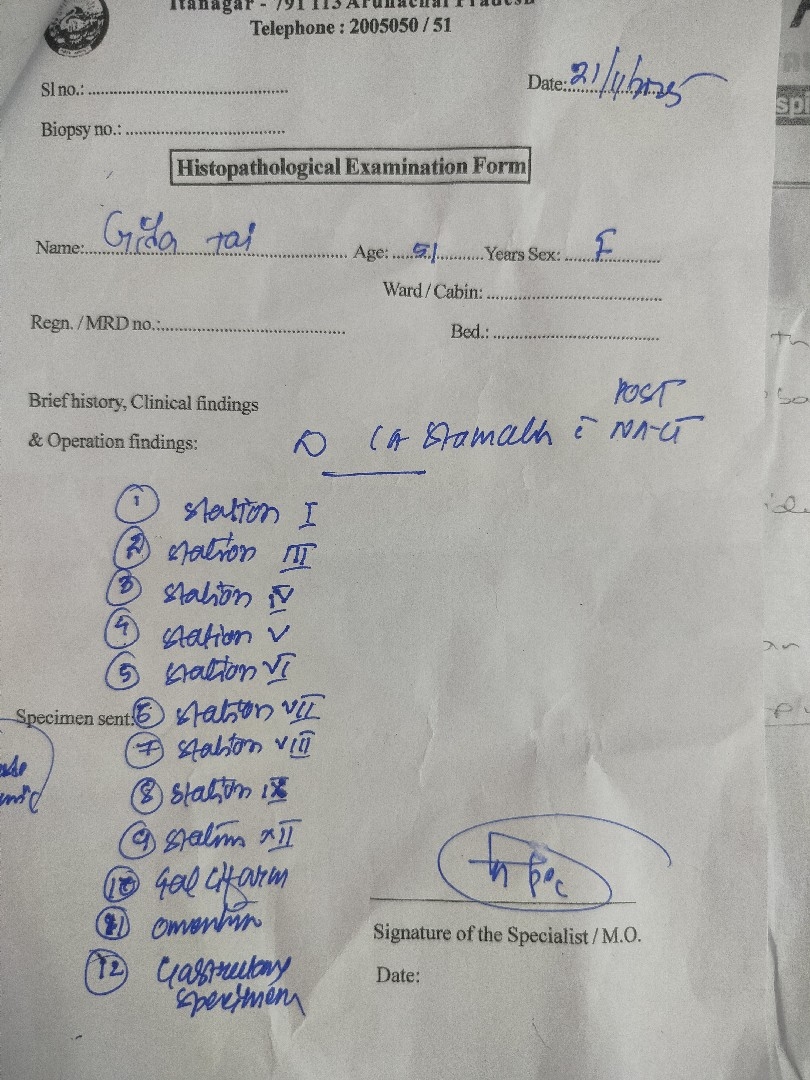 Itanagar - 791 113 Arunachal Pradesh
Telephone : 2005050 / 51
Sl no.:
Date: 21/4/2025
Biopsy no.:
Histopathological Examination Form
Name: Gida Tai Age: 51 Years Sex: F
Ward / Cabin:
Regn. / MRD no.:
Bed.:
Brief history, Clinical findings
& Operation findings:
POST
CA Stomach c̄ NACT
1 Station I
2 Station III
3 Station IV
4 Station V
5 Station VI
Specimen sent: 6 Station VII
7 Station VIII
8 Station IX
9 Station XII
10
11 Omentum
12 Gastrectomy
specimen
Signature of the Specialist / M.O.
Date: